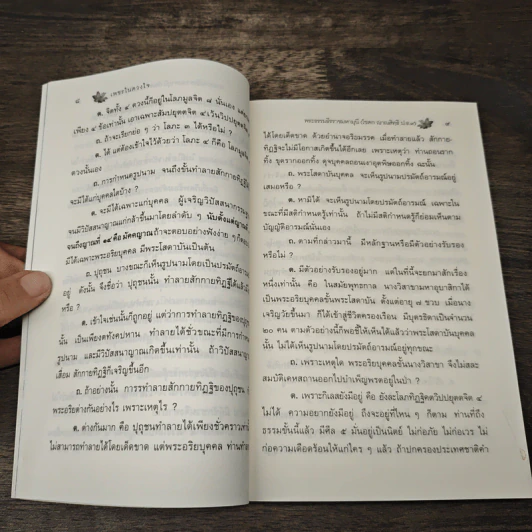 ๘ เพชรในดวงใจ
ต. จิตทั้ง ๔ ดวงนี้ก็อยู่ในโลภมูลจิต ๘ นั่นเอง แต่
เพียง ๔ ข้อเท่านั้น เอาเฉพาะสัมปยุตตจิต ๔ เว้นวิปปยุตต
ถ. ถ้าจะเรียกย่อ ๆ ว่า โลภะ ๔ ได้หรือไม่ ?
ต. ได้ แต่ต้องเข้าใจไว้ด้วยว่า โลภะ ๔ ก็คือ โลภมูล
ดวงนั้นเอง
ถ. การกำหนดรูปนาม จนถึงขั้นทำลายสักกายทิฏฐิ
จะมีได้แก่บุคคลใดบ้าง ?
ต. จะมีได้เฉพาะแก่บุคคล ผู้เจริญวิปัสสนากรรม
จนมีวิปัสสนาญาณแก่กล้าขึ้นมาโดยลำดับ ๆ นับตั้งแต่ญาณที่
จนถึงญาณที่ ๑๔ คือ มัคคญาณ ถ้าจะตอบอย่างฟังง่าย ๆ ก็
มีได้เฉพาะพระอริยบุคคล มีพระโสดาบันเป็นต้น
ถ. ปุถุชน บางขณะก็เห็นรูปนามโดยเป็นปรมัตถ์อารมณ์
อยู่ ดังนั้น จึงชื่อว่า ปุถุชนนั้น ทำลายสักกายทิฏฐิได้แล้ว
หรือ ?
ต. เข้าใจเช่นนั้นก็ถูกอยู่ แต่ว่าการทำลายสักกายทิฏฐิของปุถุชน
เป็นเพียงตทังคปหาน ทำลายได้ชั่วขณะที่มีการกำหนด
รูปนาม และมีวิปัสสนาญาณเกิดขึ้นเท่านั้น ถ้าวิปัสสนาญาณ
เสื่อม สักกายทิฏฐิก็เจริญขึ้นอีก
ถ. ถ้าอย่างนั้น การทำลายสักกายทิฏฐิของปุถุชน
พระอริยะต่างกันอย่างไร เพราะเหตุไร ?
ต. ต่างกันมาก คือ ปุถุชนทำลายได้เพียงชั่วคราวเท่านั้น
ไม่สามารถทำลายได้โดยเด็ดขาด แต่พระอริยบุคคล ท่านทำลาย
๙
ได้โดยเด็ดขาด ด้วยอำนาจอริยมรรค เมื่อทำลายแล้ว สักกาย-
ทิฏฐิจะไม่มีโอกาสเกิดขึ้นได้อีกเลย เพราะเหตุว่า ท่านถอนราก
ทิ้ง ขุดรากออกทิ้ง ดุจบุคคลถอนเงาอุตพิษออกทิ้ง ฉะนั้น
ถ. พระโสดาบันบุคคล จะเห็นรูปนามเป็นปรมัตถ์อารมณ์อยู่
เสมอหรือ ?
ต. หามิได้ จะเห็นรูปนามโดยปรมัตถ์อารมณ์ เฉพาะใน
ขณะที่มีสติกำหนดรู้เท่านั้น ถ้าไม่มีสติกำหนดรู้ก็ย่อมเห็นตาม
บัญญัติอารมณ์นั่นเอง
ถ. ตามที่กล่าวมานี้ มีหลักฐานหรือมีตัวอย่างรับรอง
หรือไม่ ?
ต. มีตัวอย่างรับรองอยู่มาก แต่ในที่นี้จะยกมาสักเรื่อง
หนึ่งเท่านั้น คือ ในสมัยพุทธกาล นางวิสาขามหาอุบาสิกาได้
เป็นพระอริยบุคคลชั้นพระโสดาบัน ตั้งแต่อายุ ๗ ขวบ เมื่อนาง
เจริญวัยขึ้นมา ก็ได้เข้าสู่ชีวิตครองเรือน มีบุตรธิดาเป็นจำนวน
๒๐ คน ตามตัวอย่างนี้ก็พอชี้ให้เห็นได้แล้วว่าพระโสดาบันบุคคล
นั้น ไม่ได้เห็นรูปนามโดยปรมัตถ์อารมณ์อยู่ทุกขณะ
ถ. เพราะเหตุใด พระอริยบุคคลชั้นนางวิสาขา จึงไม่สละ
สมบัติเคหสถานออกไปบำเพ็ญพรตอยู่ในป่า ?
ต. เพราะกิเลสยังมีอยู่ คือ ยังละโลภทิฏฐิคตวิปปยุตตจิต ๔
ไม่ได้ ความอยากยังมีอยู่ ถึงจะอยู่ที่ไหน ๆ ก็ตาม ท่านที่ถึง
ธรรมขั้นนี้แล้ว มีศีล ๕ มั่นอยู่เป็นนิตย์ ไม่ก่อภัย ไม่ก่อเวร ไม่
ก่อความเดือดร้อนให้แก่ใคร ๆ แล้ว ถ้าปกครองประเทศชาติคำ